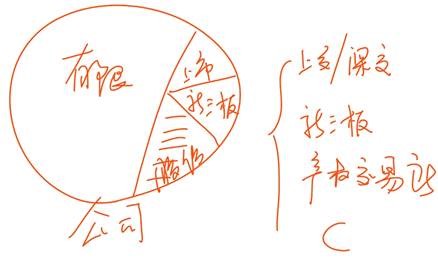 有限
上市
新三板
股份
公司
上交/深交
新三板
产权交易所